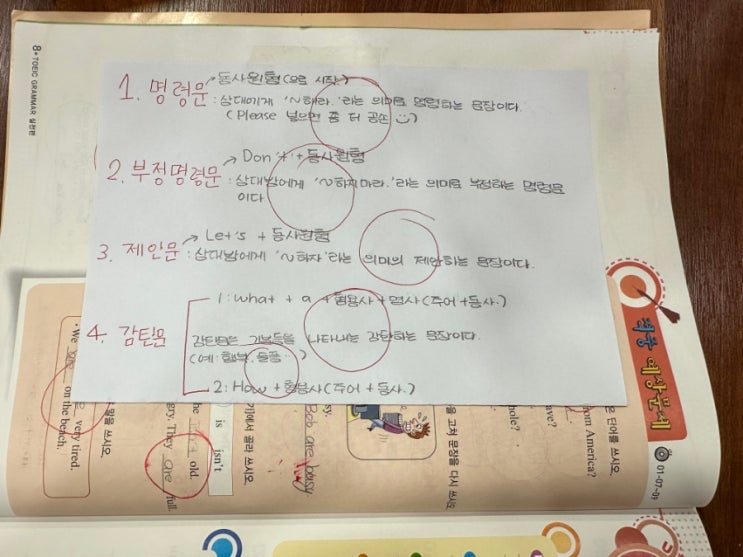 1. 명령문 → 동사원형 (으로 시작.)
: 상대에게 '~해라.'라는 의미로 명령하는 문장이다.
(Please 넣으면 좀 더 공손)
2. 부정명령문 → Don't + 동사원형
: 상대방에게 '~하지마라.'라는 의미로 부정하는 명령문
이다.
3. 제안문 → Let's + 동사원형
: 상대방에게 '~하자'라는 의미의 제안하는 문장이다.
4. 감탄문
1: what + a + 형용사 + 명사 (주어 + 동사.)
감탄문은 기분들을 나타내는 감탄하는 문장이다.
(예: 행복,
2: How + 형용사 (주어 + 동사.)
8 • TOEIC GRAMMAR 실전편
적중 예상문제
01-07-09
from America?
have?
hole?
은 단어를 쓰시오.
을 고쳐 문장을 다시 쓰시오.
Bob are busy
sy.
기에서 골라 쓰시오.
is
isn't
the
old.
gry. They are full.
말을 쓰시오.
• We
very tired.
on the bench.